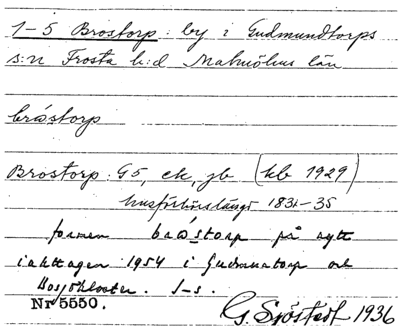 1-5 Brostorp: by i Gudmundtorps
s:n Frosta h:d Malmöhus län
bråstorp
Brostorp: G5, ek, jb (kb 1929)
husförhörslängd 1831-35
formen bråstorp på nytt
iakttagen 1954 i Gudmuntorp och
Bosjökloster. S-s.
Nr 5550.
G. Sjöstedt 1936